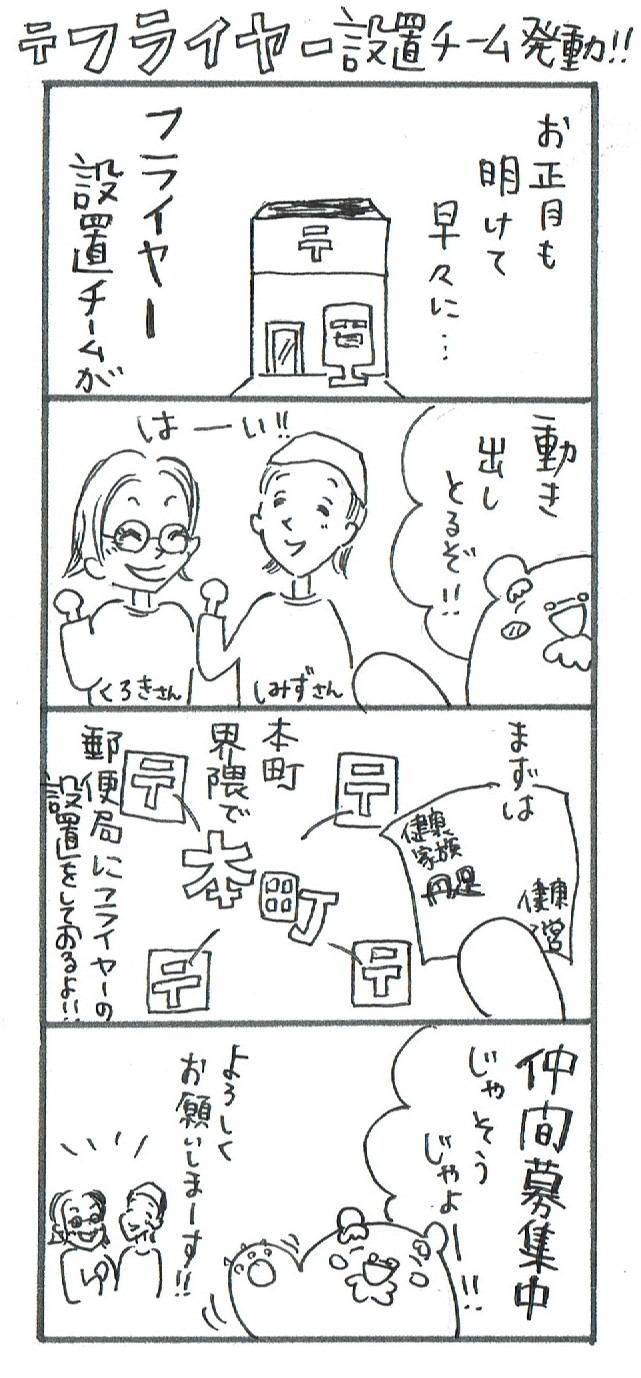 〒フライヤー設置チーム発動!!
お正月も
明けて
早々に…
〒
フライヤー
設置チームが
動き
出し
とるぞ!!
はーい!!
しみずさん
くろきさん
まずは
健康
家族
円足
健康
営
本町
界隈で
〒
〒
本町
〒
〒
郵便局にフライヤーの
設置をしておるよ!!
仲間募集中
じゃそう
じゃよー!!
よろしく
お願いしまーす!!